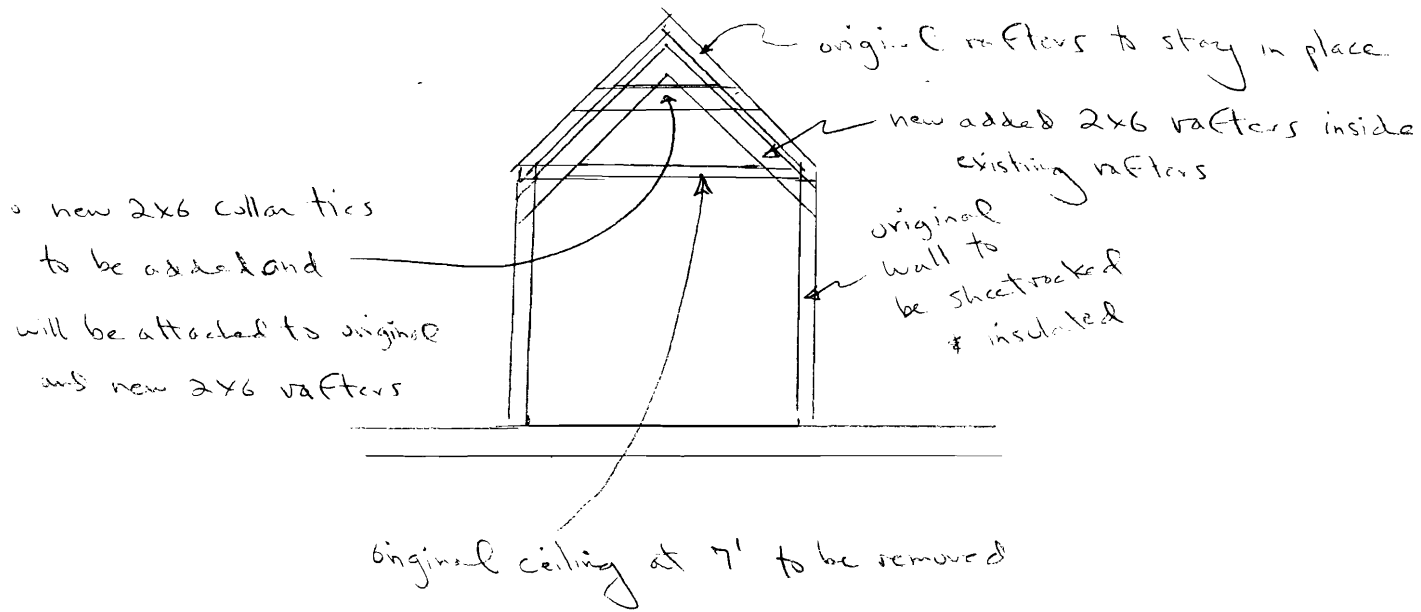 original rafters to stay in place
new added 2x6 rafters inside
existing rafters
new 2x6 collar ties
to be added and
will be attached to original
and new 2x6 rafters
original
wall to
be sheetrocked
& insulated
original ceiling at 7' to be removed